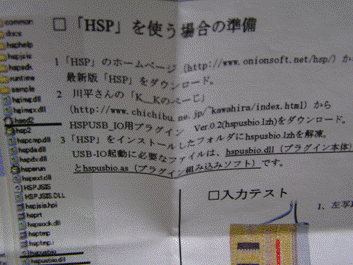 □「HSP」を使う場合の準備
1「HSP」のホームページ(http://www.onionsoft.net/hsp/)か
最新版「HSP」をダウンロード。
2 川平さんの「K__Kのぺーじ」
(http://www.chichibu.ne.jp/~kawahira/index.html)から
HSPUSB_IO用プラグイン Ver.0.2(hspusbio.lzh)をダウンロード。
3「HSP」をインストールしたフォルダにhspusbio.lzhを解凍。
USB-IO起動に必要なファイルは、hspusbio.dll (プラグイン本体)
とhspusbio.as (プラグイン組み込みソフト)です。
□入力テスト
1.左写
common
docs
hsphelp
hspjsis
hspsdk
runtime
sample
hsp2
hspcmp.dll
hspda.dll
hspdx.dll
hsperrun
hspext.dll
HSPJSIS
HSPJSIS.DLL
hspjsis.hpi
hsprt
hspsock.dll
hsptmp
hsptmp.i
hspusbio
hspusbio.dll